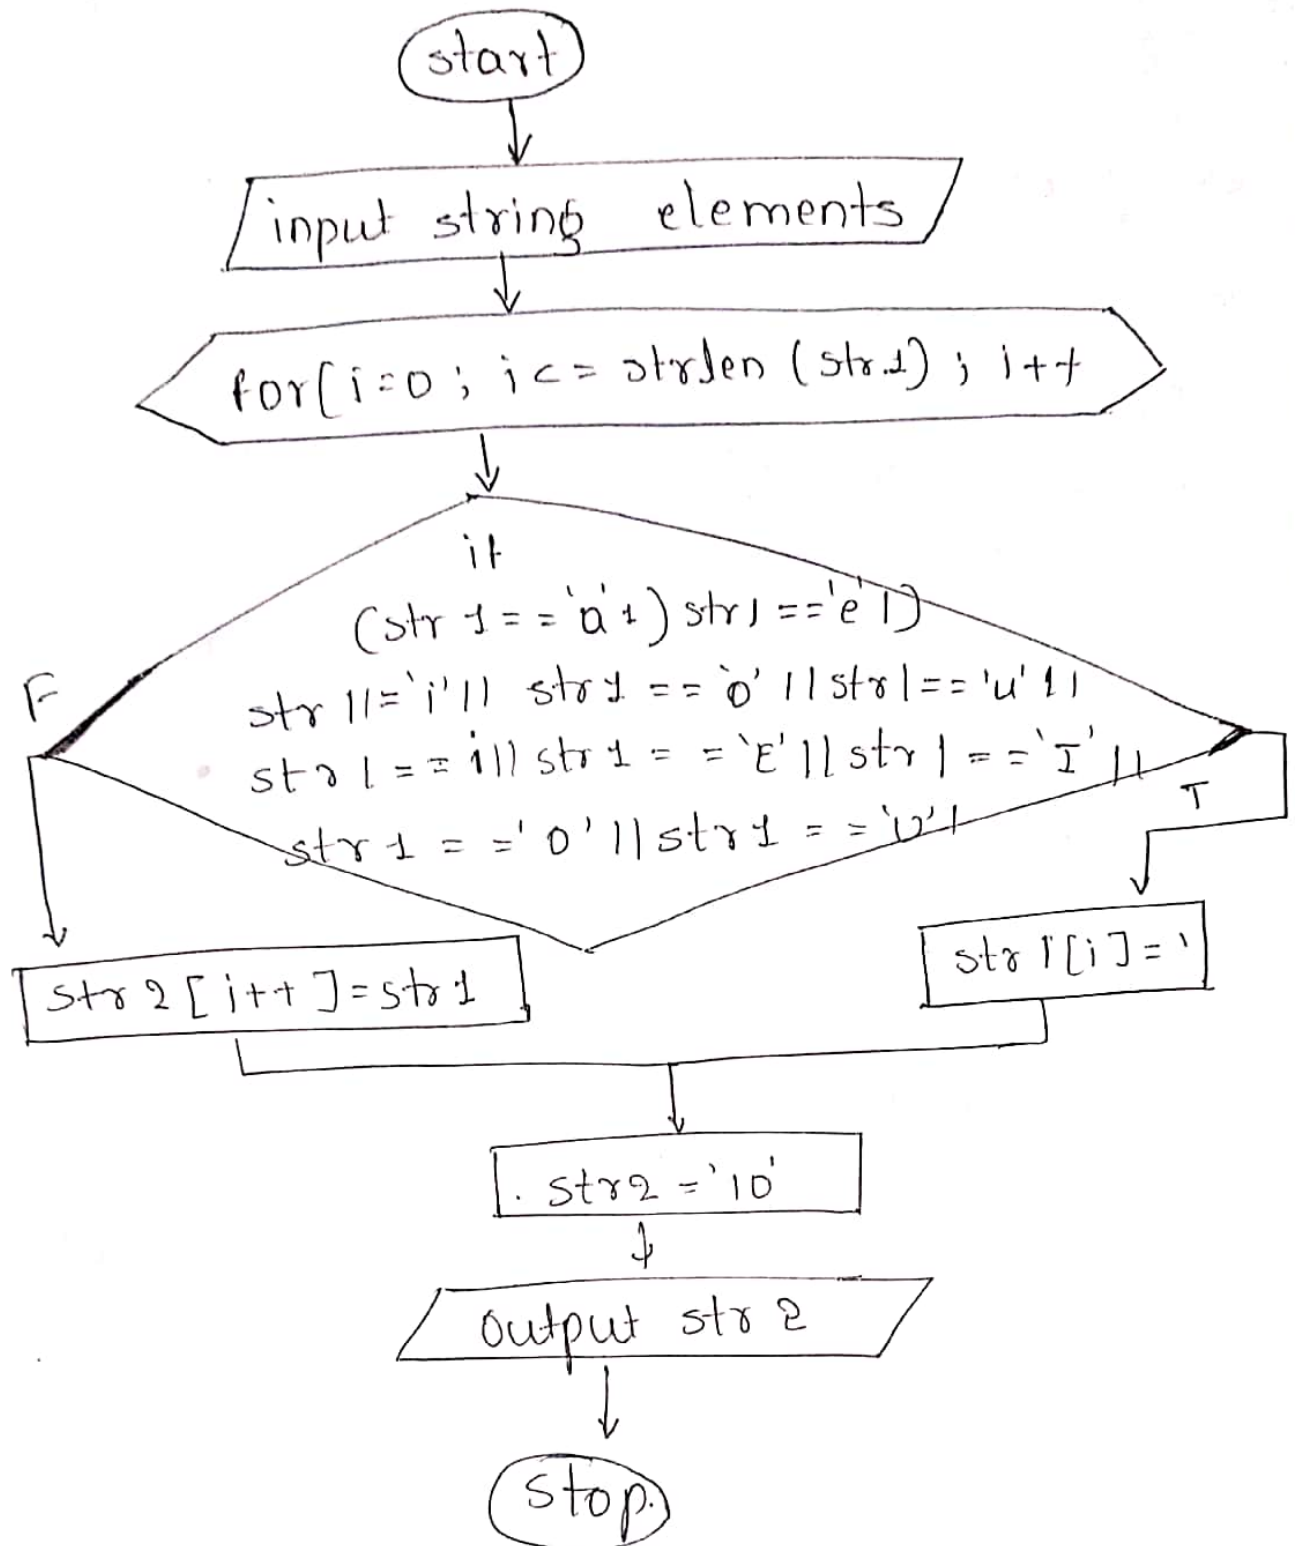 start
input string elements
for(i=0 ; i<= strlen (str1) ; i++
if
(str 1 == 'a'1) str1 == 'e'1)
str 11= 'i' || str 1 == 'o' || str1 == 'u' ||
str 1 == i|| str 1 = = 'E' || str 1 == 'I' ||
str 1 = = 'O' || str 1 = = 'U'1
F
T
str 2 [ i++ ] = str 1
str 1 [i] = '
str2 = '10'
output str 2
stop.